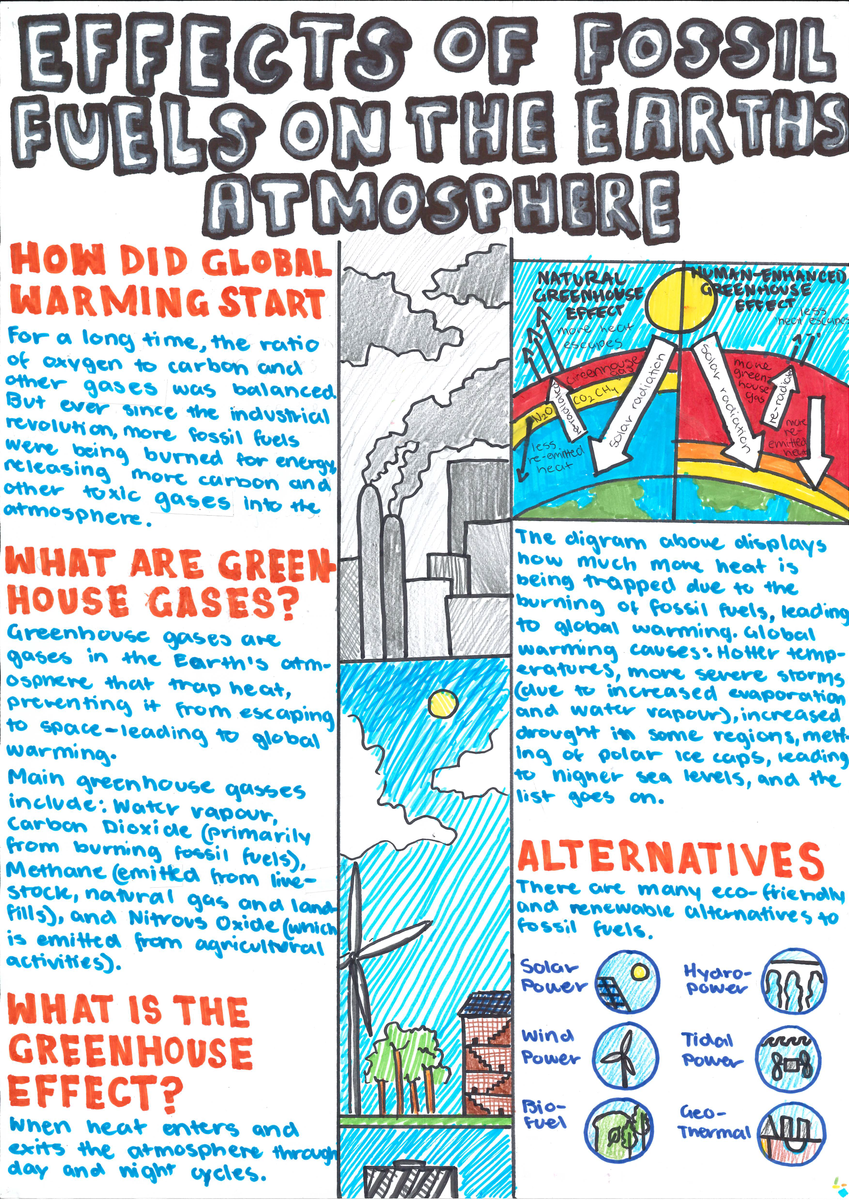 EFFECTS OF FOSSIL
FUELS ON THE EARTHS
ATMOSPHERE
HOW DID GLOBAL
WARMING START
For a long time, the ratio
of oxygen to carbon and
other gases was balanced.
But ever since the industrial
revolution, more fossil fuels
were being burned for energy
releasing more carbon and
other toxic gases into the
atmosphere.
WHAT ARE GREEN-
HOUSE GASES?
Greenhouse gases are
gases in the Earth's atm-
osphere that trap heat,
preventing it from escaping
to space-leading to global
warming.
Main greenhouse gasses
include: Water vapour,
Carbon Dioxide (primarily
from burning fossil fuels),
Methane (emitted from live-
stock, natural gas and land-
fills), and Nitrous Oxide (which
is emitted from agricultural
activities).
WHAT IS THE
GREENHOUSE
EFFECT?
When heat enters and
exits the atmosphere through
day and night cycles.
NATURAL
GREENHOUSE
EFFECT
more heat
escapes
Greenhouse
gas
N2O
CO2 CH4
re-radiated
solar radiation
less
re-emitted
heat
HUMAN-ENHANCED
GREENHOUSE
EFFECT
less
heat escapes
solar radiation
more
green-
house
gas
re-radiated
more
re-
emitted
heat
The digram above displays
how much more heat is
being trapped due to the
burning of fossil fuels, leading
to global warming. Global
warming causes: Hotter temp-
eratures, more severe storms
(due to increased evaporation
and water vapour), increased
drought in some regions, melt-
ing of polar ice caps, leading
to higher sea levels, and the
list goes on.
ALTERNATIVES
There are many eco-friendly
and renewable alternatives to
fossil fuels.
Solar
Power
Hydro-
power
Wind
Power
Tidal
Power
Bio-
fuel
Geo-
Thermal